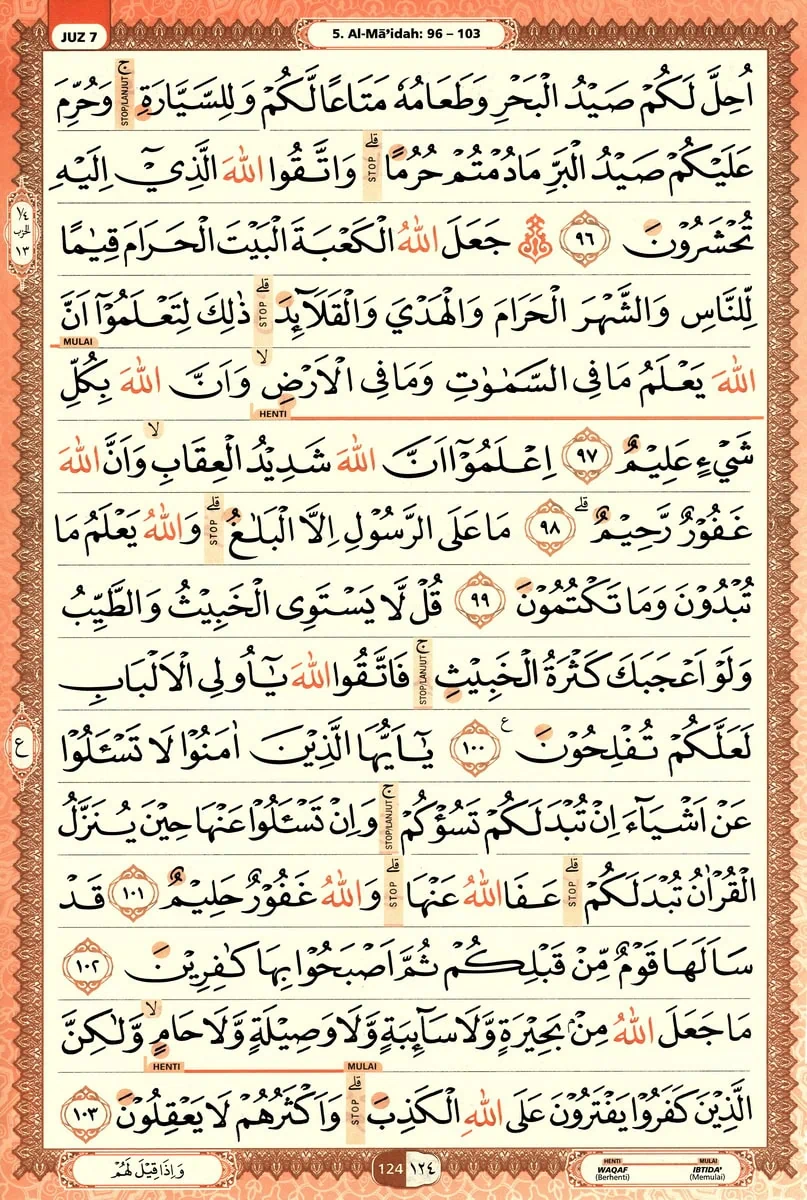 JUZ 7
5. Al-Mā'idah: 96 – 103
اُحِلَّ لَكُمْ صَيْدُ الْبَحْرِ وَطَعَامُهٗ مَتَاعًا لَّكُمْ وَلِلسَّيَّارَةِۚ STOP/LANJUT وَحُرِّمَ
عَلَيْكُمْ صَيْدُ الْبَرِّ مَا دُمْتُمْ حُرُمًاۗ STOP وَاتَّقُوا اللّٰهَ الَّذِيْٓ اِلَيْهِ
تُحْشَرُوْنَ ٩٦ ۞ جَعَلَ اللّٰهُ الْكَعْبَةَ الْبَيْتَ الْحَرَامَ قِيٰمًا
١/٤ الحزب ١٣
لِّلنَّاسِ وَالشَّهْرَ الْحَرَامَ وَالْهَدْيَ وَالْقَلَاۤىِٕدَۗ STOP ذٰلِكَ لِتَعْلَمُوْٓا اَنَّ
MULAI
اللّٰهَ يَعْلَمُ مَا فِى السَّمٰوٰتِ وَمَا فِى الْاَرْضِۙ وَاَنَّ اللّٰهَ بِكُلِّ
HENTI
شَيْءٍ عَلِيْمٌ ٩٧ اِعْلَمُوْٓا اَنَّ اللّٰهَ شَدِيْدُ الْعِقَابِۙ وَاَنَّ اللّٰهَ
غَفُوْرٌ رَّحِيْمٌۗ ٩٨ مَا عَلَى الرَّسُوْلِ اِلَّا الْبَلٰغُۗ STOP وَاللّٰهُ يَعْلَمُ مَا
تُبْدُوْنَ وَمَا تَكْتُمُوْنَ ٩٩ قُلْ لَّا يَسْتَوِى الْخَبِيْثُ وَالطَّيِّبُ
وَلَوْ اَعْجَبَكَ كَثْرَةُ الْخَبِيْثِۚ STOP/LANJUT فَاتَّقُوا اللّٰهَ يٰٓاُولِى الْاَلْبَابِ
لَعَلَّكُمْ تُفْلِحُوْنَ ࣖ ١٠٠ يٰٓاَيُّهَا الَّذِيْنَ اٰمَنُوْا لَا تَسْـَٔلُوْا
ع
عَنْ اَشْيَاۤءَ اِنْ تُبْدَ لَكُمْ تَسُؤْكُمْۚ STOP/LANJUT وَاِنْ تَسْـَٔلُوْا عَنْهَا حِيْنَ يُنَزَّلُ
الْقُرْاٰنُ تُبْدَ لَكُمْۗ STOP عَفَا اللّٰهُ عَنْهَاۗ STOP وَاللّٰهُ غَفُوْرٌ حَلِيْمٌ ١٠١ قَدْ
سَاَلَهَا قَوْمٌ مِّنْ قَبْلِكُمْ ثُمَّ اَصْبَحُوْا بِهَا كٰفِرِيْنَ ١٠٢
مَا جَعَلَ اللّٰهُ مِنْۢ بَحِيْرَةٍ وَّلَا سَاۤىِٕبَةٍ وَّلَا وَصِيْلَةٍ وَّلَا حَامٍۙ وَّلٰكِنَّ
HENTI MULAI
الَّذِيْنَ كَفَرُوْا يَفْتَرُوْنَ عَلَى اللّٰهِ الْكَذِبَۗ STOP وَاَكْثَرُهُمْ لَا يَعْقِلُوْنَ ١٠٣
وَاِذَا قِيْلَ لَهُمْ
124 ١٢٤
HENTI MULAI
WAQAF IBTIDA'
(Berhenti) (Memulai)